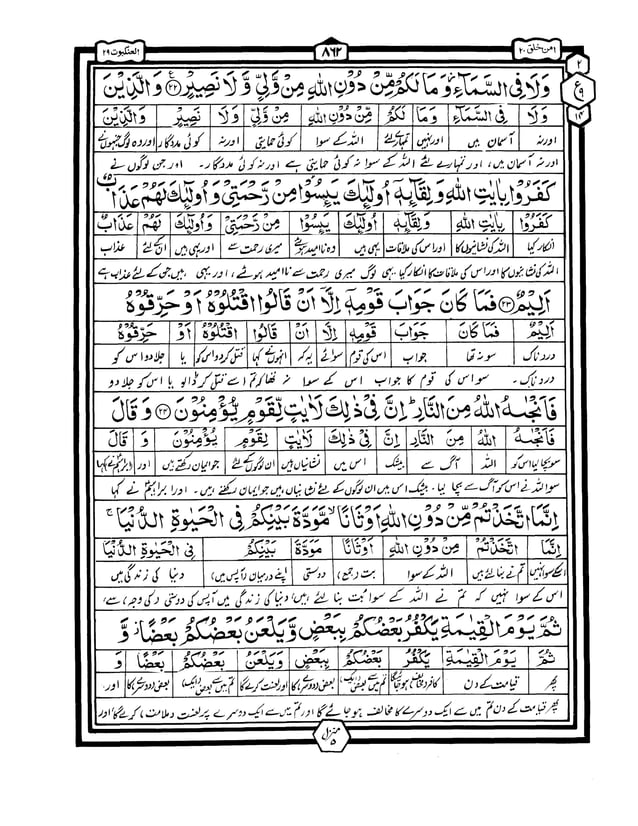 امن خلق ۲۰
۸۶۲
العنکبوت ۲۹
وَلَا فِي السَّمَآءِ وَمَا لَكُمْ مِّنْ دُوْنِ اللّٰهِ مِنْ وَّلِيٍّ وَّلَا نَصِيْرٍ ۟۲۲ وَالَّذِيْنَ
وَلَا فِي السَّمَآءِ وَمَا لَكُمْ مِّنْ دُوْنِ اللّٰهِ مِنْ وَّلِيٍّ وَّلَا نَصِيْرٍ وَالَّذِيْنَ
اور نہ آسمان میں اور نہیں تمہارے لئے اللہ کے سوا کوئی حمایتی اور نہ کوئی مددگار اور وہ لوگ جنہوں نے
اور نہ آسمان میں، اور تمہارے لئے اللہ کے سوا نہ کوئی حمایتی ہے اور نہ کوئی مددگار۔ اور جن لوگوں نے
كَفَرُوْا بِاٰيٰتِ اللّٰهِ وَلِقَآئِهٖٓ اُولٰٓئِكَ يَئِسُوْا مِنْ رَّحْمَتِيْ وَاُولٰٓئِكَ لَهُمْ عَذَابٌ
كَفَرُوْا بِاٰيٰتِ اللّٰهِ وَلِقَآئِهٖٓ اُولٰٓئِكَ يَئِسُوْا مِنْ رَّحْمَتِيْ وَاُولٰٓئِكَ لَهُمْ عَذَابٌ
انکار کیا اللہ کی نشانیوں کا اور اس کی ملاقات یہی ہیں وہ ناامید ہوئے میری رحمت سے اور یہی ہیں ان کے لئے عذاب
اللہ کی نشانیوں کا اور اس کی ملاقات کا انکار کیا یہی لوگ میری رحمت سے ناامید ہوئے، اور یہی ہیں جن کے لئے عذاب ہے
اَلِيْمٌ ۟۲۳ فَمَا كَانَ جَوَابَ قَوْمِهٖٓ اِلَّآ اَنْ قَالُوا اقْتُلُوْهُ اَوْ حَرِّقُوْهُ
اَلِيْمٌ فَمَا كَانَ جَوَابَ قَوْمِهٖٓ اِلَّآ اَنْ قَالُوا اقْتُلُوْهُ اَوْ حَرِّقُوْهُ
دردناک سو نہ تھا جواب اس کی قوم سوائے یہ کہ انہوں نے کہا قتل کردو اس کو یا جلا دو اس کو
دردناک۔ سو اس کی قوم کا جواب اس کے سوا نہ تھا کہ تم اسے قتل کر ڈالو یا اس کو جلا دو
فَاَنْجٰىهُ اللّٰهُ مِنَ النَّارِ ؕ اِنَّ فِيْ ذٰلِكَ لَاٰيٰتٍ لِّقَوْمٍ يُّؤْمِنُوْنَ ۟۲۴ وَقَالَ
فَاَنْجٰىهُ اللّٰهُ مِنَ النَّارِ اِنَّ فِيْ ذٰلِكَ لَاٰيٰتٍ لِّقَوْمٍ يُّؤْمِنُوْنَ وَ قَالَ
سو بچا لیا اس کو اللہ آگ سے بیشک اس میں نشانیاں ہیں ان لوگوں کے لئے جو ایمان رکھتے ہیں اور (ابراہیم نے) کہا
سو اللہ نے اس کو آگ سے بچا لیا۔ بیشک اس میں ان لوگوں کے لئے نشانیاں ہیں جو ایمان رکھتے ہیں۔ اور ابراہیمؑ نے کہا
اِنَّمَا اتَّخَذْتُمْ مِّنْ دُوْنِ اللّٰهِ اَوْثَانًا ۙ مَّوَدَّةَ بَيْنِكُمْ فِي الْحَيٰوةِ الدُّنْيَا ۚ
اِنَّمَا اتَّخَذْتُمْ مِّنْ دُوْنِ اللّٰهِ اَوْثَانًا مَوَدَّةَ بَيْنِكُمْ فِي الْحَيٰوةِ الدُّنْيَا
اسکے سوا نہیں تم نے بنا لئے ہیں اللہ کے سوا بت (جمع) دوستی اپنے درمیان (آپس میں) دنیا کی زندگی میں
اس کے سوا نہیں کہ تم نے اللہ کے سوا بت بنا لئے ہیں، دنیا کی زندگی میں آپس کی دوستی (کی وجہ) سے،
ثُمَّ يَوْمَ الْقِيٰمَةِ يَكْفُرُ بَعْضُكُمْ بِبَعْضٍ وَّيَلْعَنُ بَعْضُكُمْ بَعْضًا ؗ وَّ
ثُمَّ يَوْمَ الْقِيٰمَةِ يَكْفُرُ بَعْضُكُمْ بِبَعْضٍ وَيَلْعَنُ بَعْضُكُمْ بَعْضًا وَ
پھر قیامت کے دن تم میں سے بعض (ایک) بعض (دوسرے) کا اور لعنت کرے گا تم میں سے بعض (ایک) بعض (دوسرے) کا اور
پھر قیامت کے دن تم میں سے ایک دوسرے کا مخالف ہو جائے گا اور تم میں سے ایک دوسرے پر لعنت (و ملامت) کرے گا اور
منزل ۵